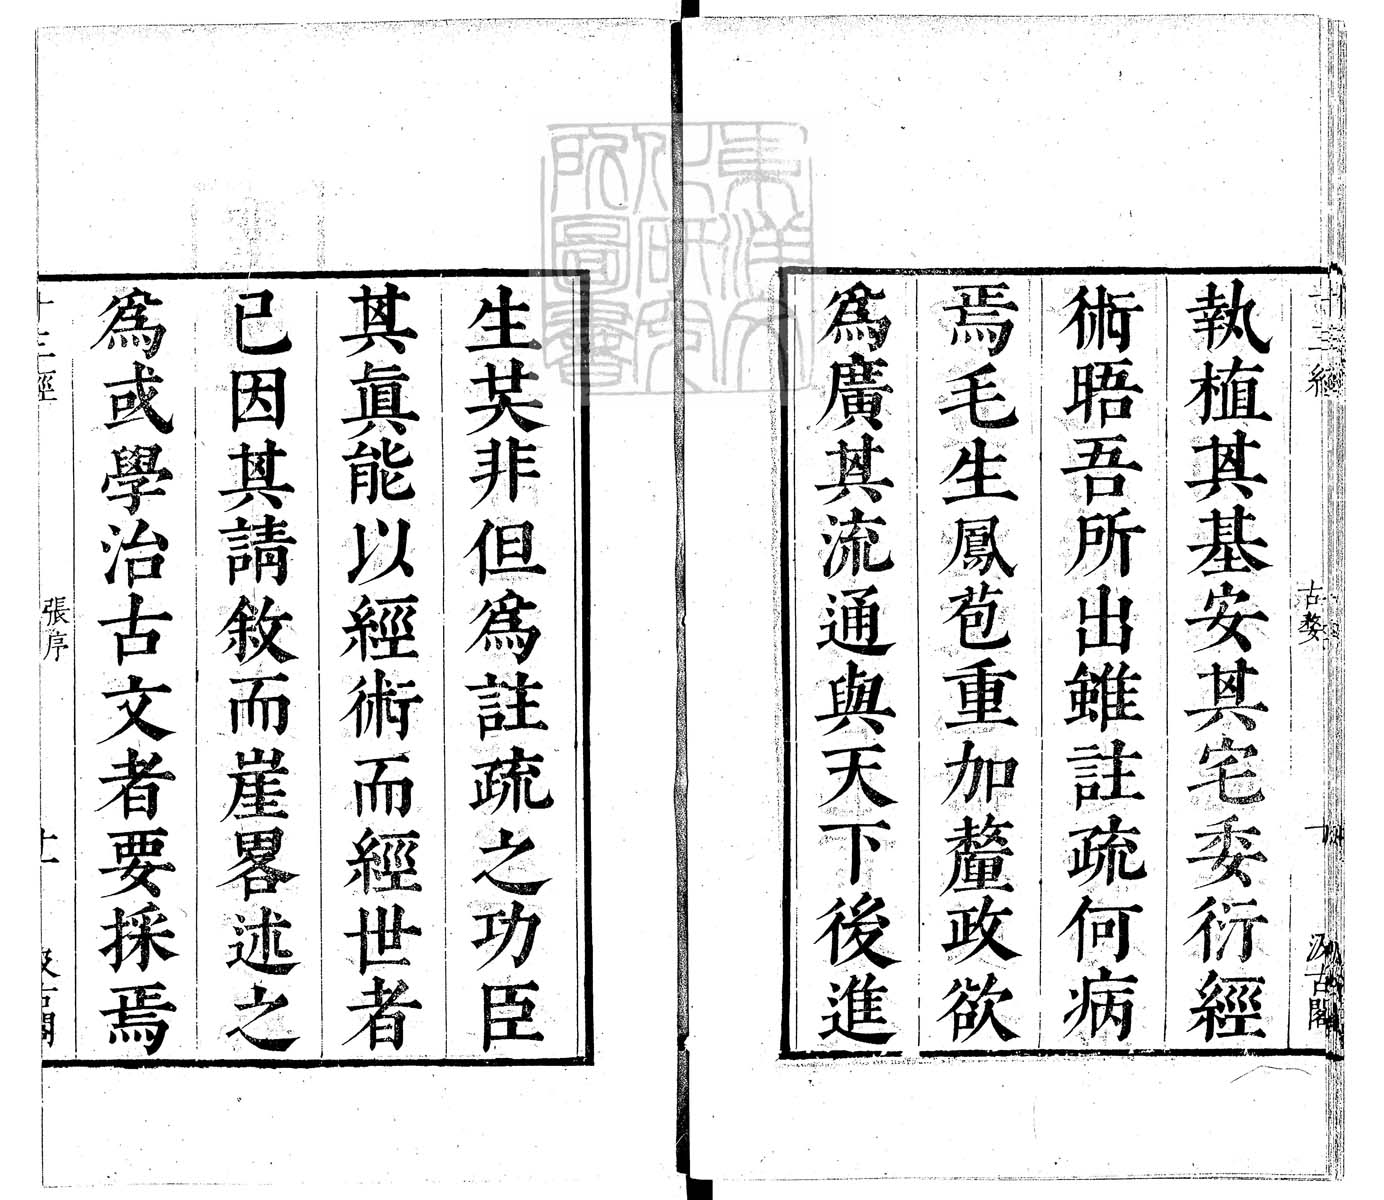 執植其基安其宅委衍經
術晤吾所出雖註疏何病
焉毛生鳳苞重加釐政欲
爲廣其流通與天下後進
生共非但爲註疏之功臣
其眞能以經術而經世者
已因其請敘而崖畧述之
爲或學治古文者要採焉
十三經
張序
十一
汲古閣
東洋文化研究所圖書